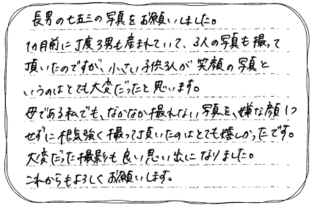 長男の七五三の写真をお願いしました。
1ヶ月前に丁度3男も産まれていて、3人の写真も撮って
頂いたのですが、小さい子供3人が笑顔の写真と
いうのはとても大変だったと思います。
母である私でも、なかなか撮れない写真を、嫌な顔1つ
せずに根気強く撮って頂いたのはとても嬉しかったです。
大変だった撮影も良い思い出になりました。
これからもよろしくお願いします。